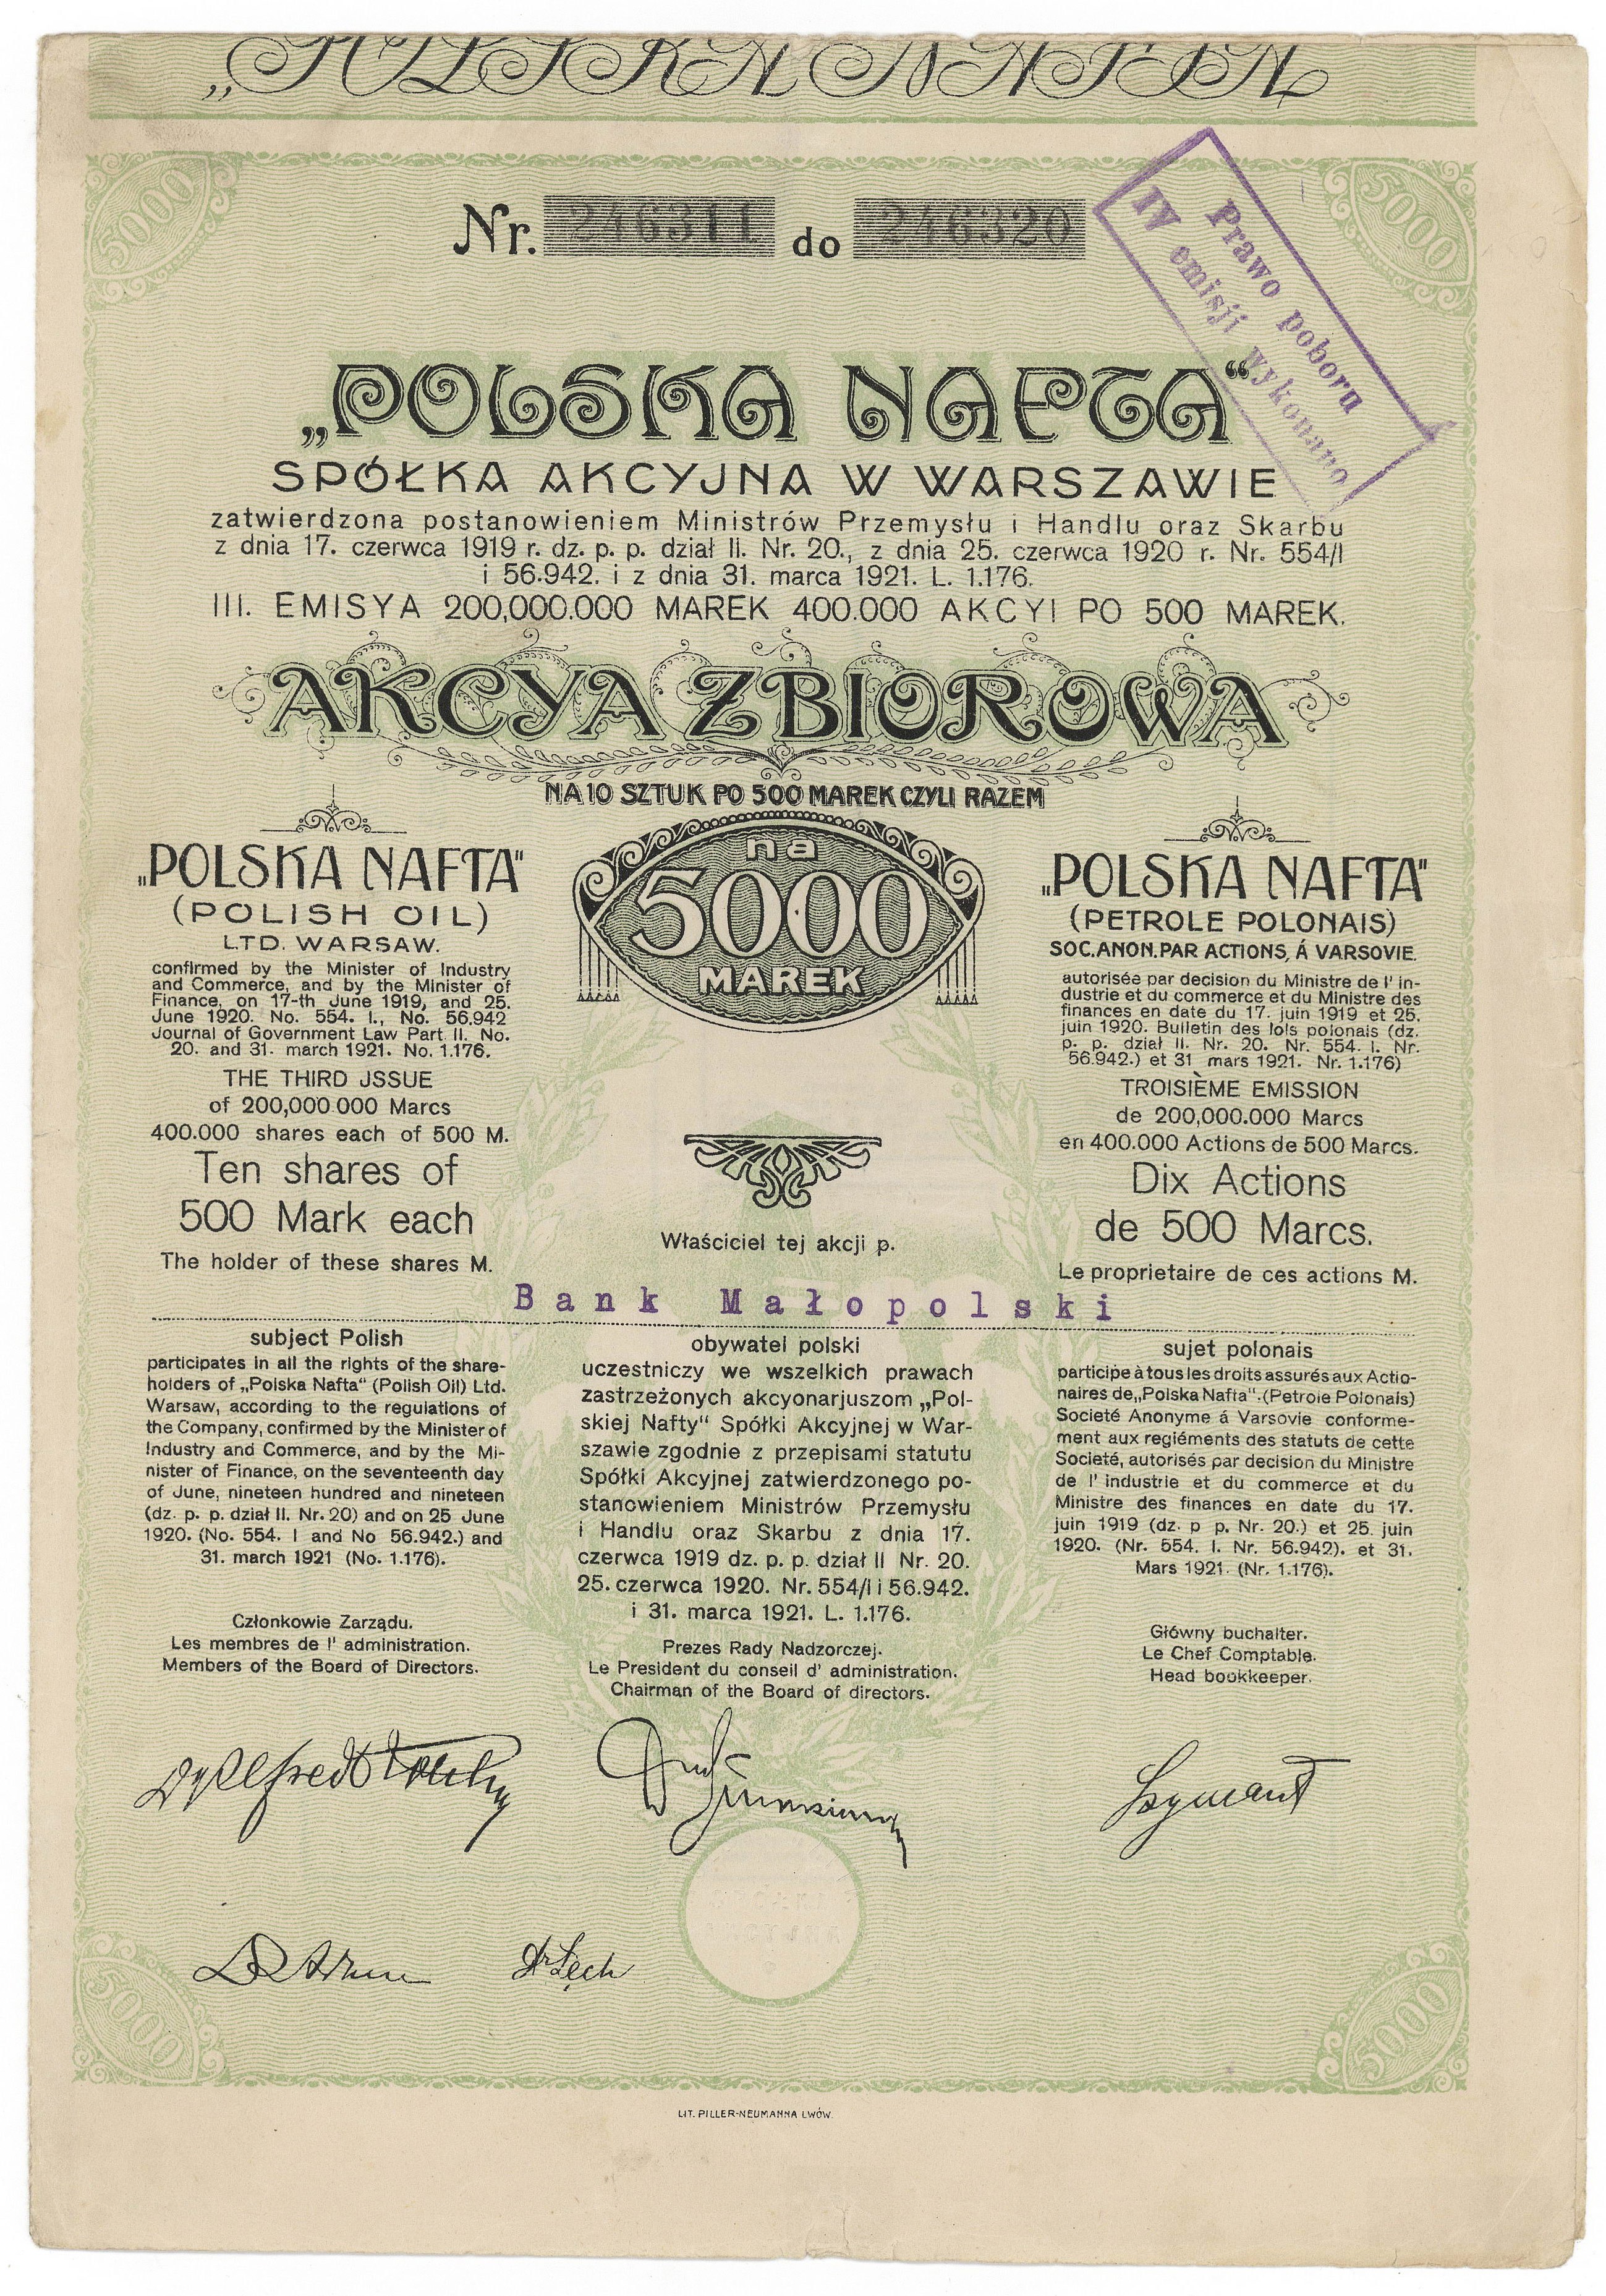 „POLSKA NAFTA
5000
5000
Nr. 246311 do 246320
Prawo poboru
IV emisji wykonano
„POLSKA NAFTA“
SPÓŁKA AKCYJNA W WARSZAWIE
zatwierdzona postanowieniem Ministrów Przemysłu i Handlu oraz Skarbu
z dnia 17. czerwca 1919 r. dz. p. p. dział II. Nr. 20., z dnia 25. czerwca 1920 r. Nr. 554/I
i 56.942. i z dnia 31. marca 1921. L. 1.176.
III. EMISYA 200,000.000 MAREK 400.000 AKCYI PO 500 MAREK.
AKCYA ZBIOROWA
NA 10 SZTUK PO 500 MAREK CZYLI RAZEM
na
5000
MAREK
„POLSKA NAFTA“
(POLISH OIL)
LTD. WARSAW.
confirmed by the Minister of Industry
and Commerce, and by the Minister of
Finance, on 17-th June 1919, and 25.
June 1920. No. 554. I., No. 56.942
Journal of Government Law Part. II. No.
20. and 31. march 1921. No. 1.176.
THE THIRD JSSUE
of 200,000.000 Marcs
400.000 shares each of 500 M.
Ten shares of
500 Mark each
The holder of these shares M.
„POLSKA NAFTA“
(PETROLE POLONAIS)
SOC. ANON. PAR ACTIONS, Á VARSOVIE.
autorisée par decision du Ministre de l' in-
dustrie et du commerce et du Ministre des
finances en date du 17. juin 1919 et 25.
juin 1920. Bulletin des lois polonais (dz.
p. p. dział II. Nr. 20. Nr. 554. I. Nr.
56.942.) et 31 mars 1921. Nr. 1.176)
TROISIÈME EMISSION
de 200,000.000 Marcs
en 400.000 Actions de 500 Marcs.
Dix Actions
de 500 Marcs.
Le proprietaire de ces actions M.
Właściciel tej akcji p.
Bank Małopolski
subject Polish
participates in all the rights of the share-
holders of „Polska Nafta“ (Polish Oil) Ltd.
Warsaw, according to the regulations of
the Company, confirmed by the Minister of
Industry and Commerce, and by the Mi-
nister of Finance, on the seventeenth day
of June, nineteen hundred and nineteen
(dz. p. p. dział II. Nr. 20) and on 25 June
1920. (No. 554. I and No 56.942.) and
31. march 1921 (No. 1.176).
obywatel polski
uczestniczy we wszelkich prawach
zastrzeżonych akcyonarjuszom „Pol-
skiej Nafty“ Spółki Akcyjnej w War-
szawie zgodnie z przepisami statutu
Spółki Akcyjnej zatwierdzonego po-
stanowieniem Ministrów Przemysłu
i Handlu oraz Skarbu z dnia 17.
czerwca 1919 dz. p. p. dział II Nr. 20.
25. czerwca 1920. Nr. 554/I i 56.942.
i 31. marca 1921. L. 1.176.
sujet polonais
participe à tous les droits assurés aux Actio-
naires de „Polska Nafta“. (Petrole Polonais)
Societé Anonyme á Varsovie conforme-
ment aux regiéments des statuts de cette
Societé, autorisés par decision du Ministre
de l' industrie et du commerce et du
Ministre des finances en date du 17.
juin 1919 (dz. p p. Nr. 20.) et 25. juin
1920. (Nr. 554. I. Nr. 56.942). et 31.
Mars 1921. (Nr. 1.176).
Członkowie Zarządu.
Les membres de l' administration.
Members of the Board of Directors.
Prezes Rady Nadzorczej.
Le President du conseil d' administration.
Chairman of the Board of directors.
Główny buchalter.
Le Chef Comptable.
Head bookkeeper.
Dr Alfred
Szymant
Dr Lech
5000
5000
LIT. PILLER-NEUMANNA LWÓW.